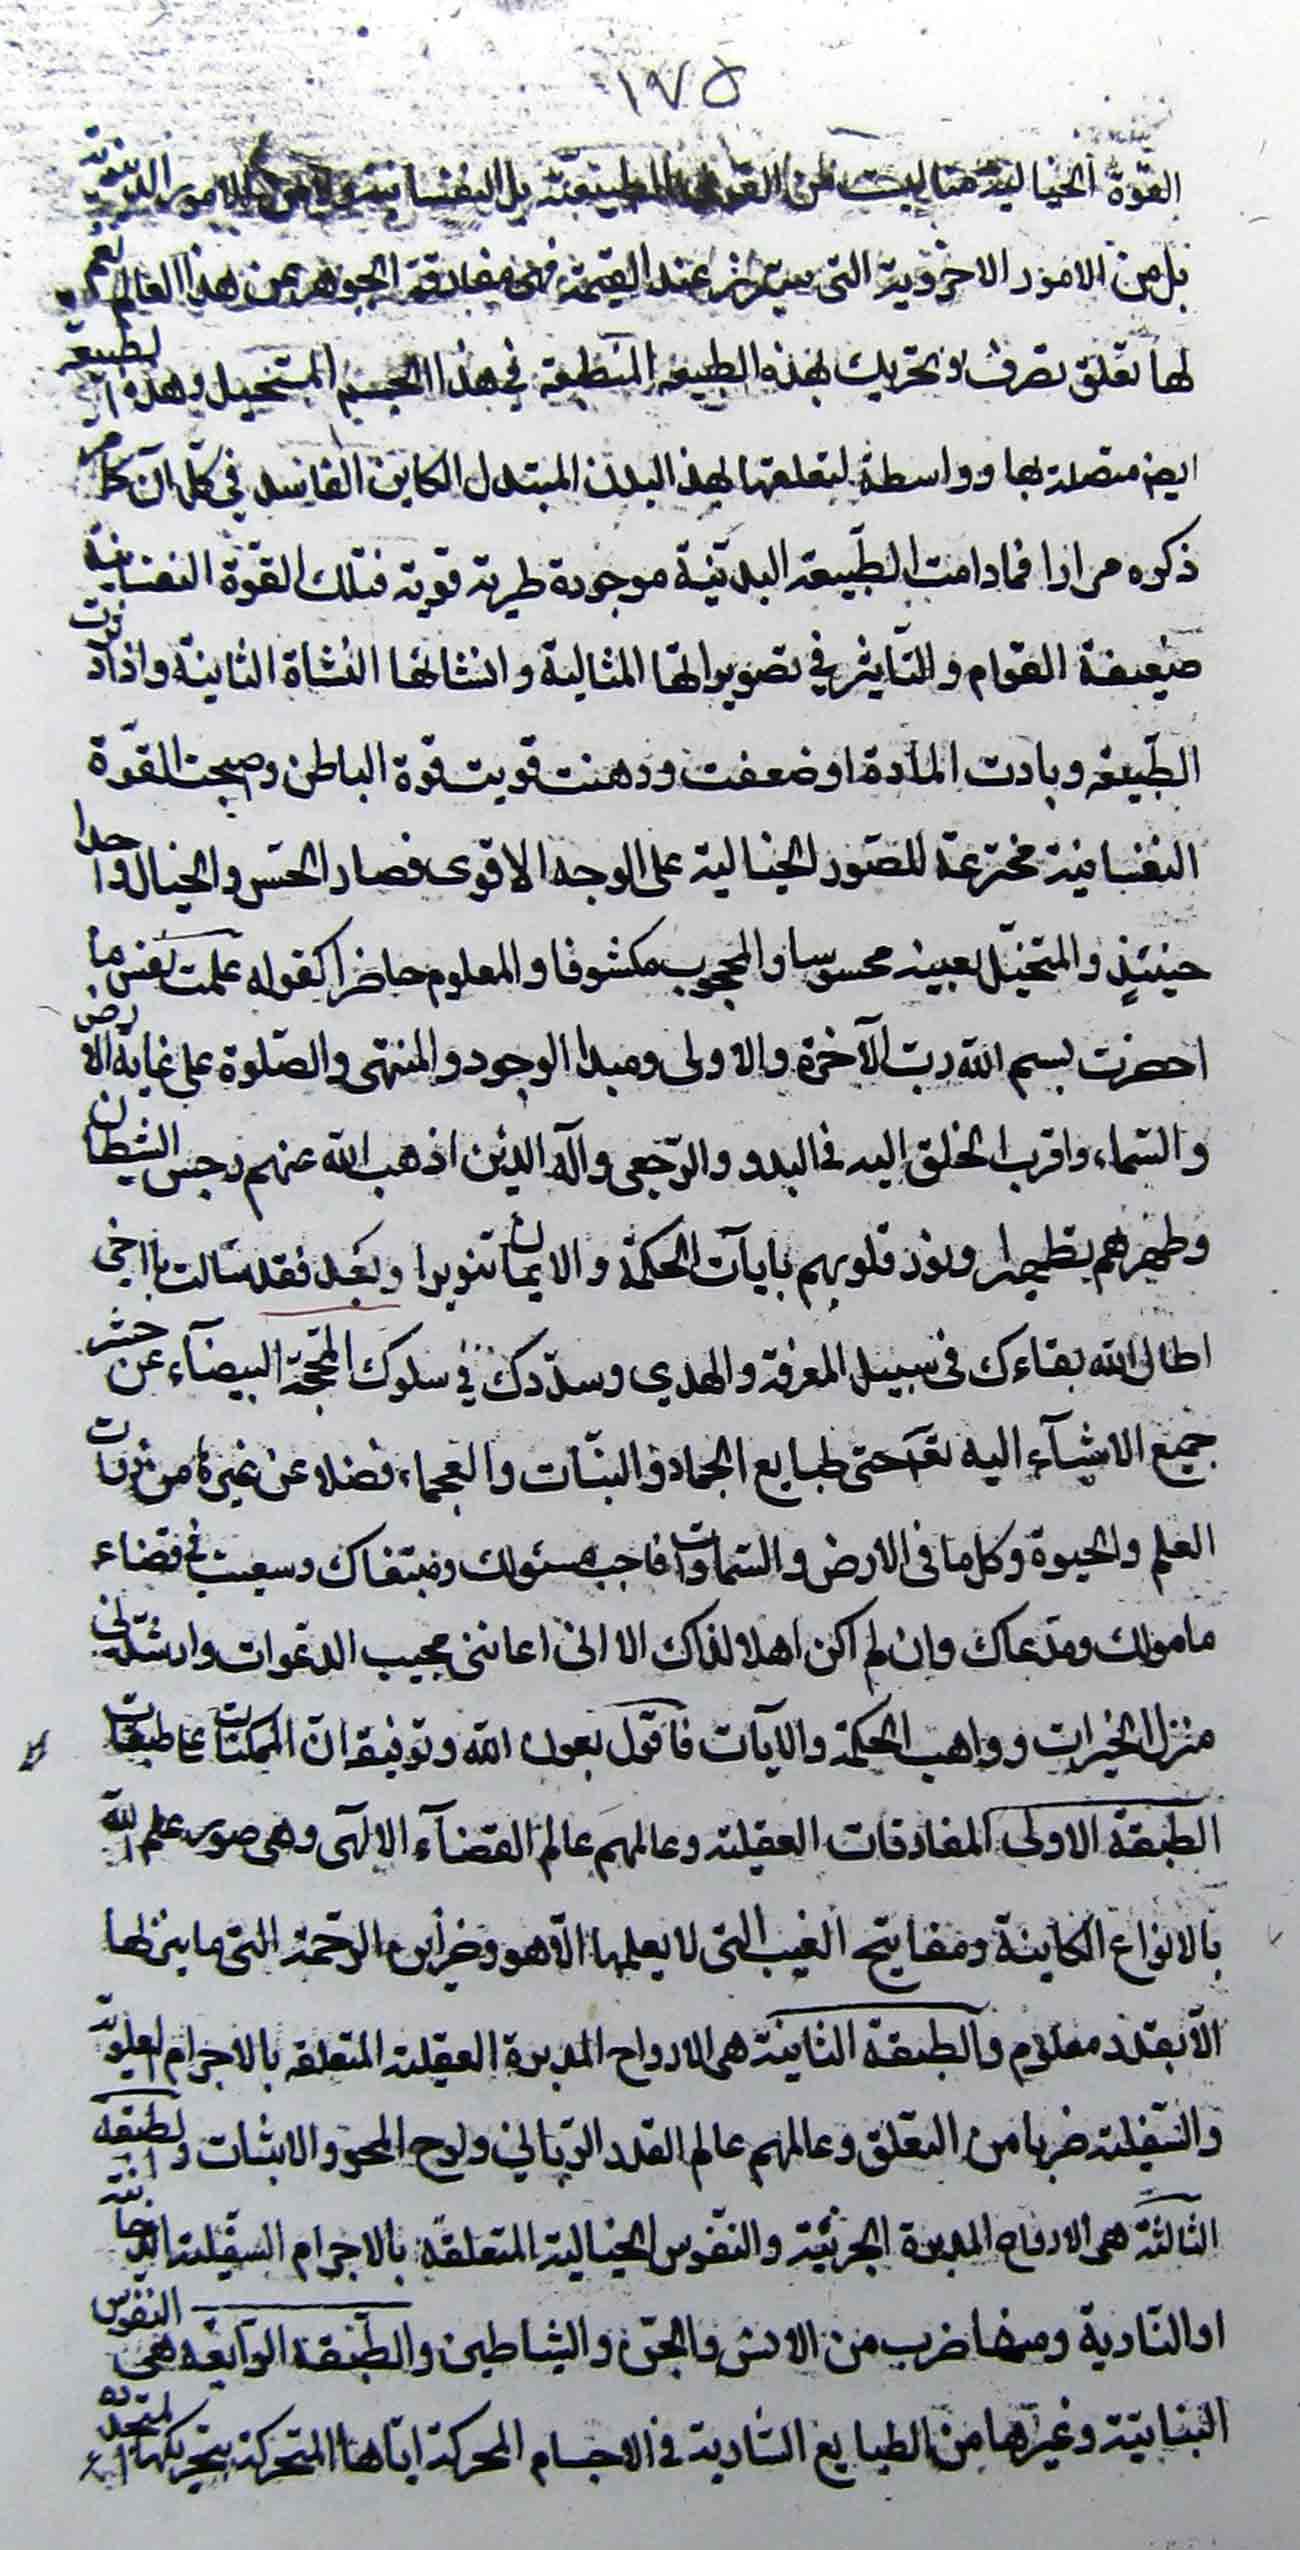 ١٧٥
القوة الخيالية منا ليست من القوى الطبيعية بل النفسانية ولا من الامور الدنيوية
بل من الامور الاخروية التى ستبرز عند القيمة فهى مفارقة الجوهر عن هذا العالم نعم
لها تعلق تصرف وتحريك لهذه الطبيعه المنطبعة في هذا الجسم المستحيل وهذه الطبيعة
ايضم متصلة بها وواسطة لتعلقها لهذا البدن المبتدل الكاين الفاسد في كلّ آن كما مر
ذكره مرارا فمادامت الطبيعة البدنية موجودة طرية قوية فتلك القوة النفسانية
ضعيفة القوام والتاثير في تصويراتها المثالية وانشائها النشاة الثانية واذا دثرت
الطبيعه وبادت المادة او ضعفت ووهنت قويت قوة الباطن وصبحت القوة
النفسانية مخترعة للصور الخيالية على الوجه الاقوى فصار الحس والخيال واحدا
حينئذ والمتخيل بعينه محسوسا والمحجوب مكشوفا والمعلوم حاضرا كقوله علمت نفس ما
احضرت بسم الله رب الآخرة والاولى ومبدا الوجود والمنتهى والصلوة على غاية الارض
والسماء واقرب الخلق اليه في البدو والرجعى وآله الذين اذهب الله عنهم رجس الشيطان
وطهرهم تطهيرا ونور قلوبهم بايات الحكمة والايمان تنويرا وبعد فقد سالت يا اخى
اطال الله بقاءك فى سبيل المعرفة والهدي وسددك في سلوك المحجة البيضاء عن حشر
جميع الاشياء اليه تعا حتى طبايع الجماد والنبات والعجماء فضلا عن غيرها من ذوات
العلم والحيوة وكل ما فى الارض والسماوات فاجبت مسئولك ومبتغاك وسعيت في قضاء
مامولك ومدعاك وان لم اكن اهلا لذاك الا انى اعاننى مجيب الدعوات وارشدنى
منزل الخيرات وواهب الحكمة والايات فاقول بعون الله وتوفيقه ان الممكنات على طبقات
الطبقة الاولى المفارقات العقلية وعالمهم عالم القضاء الالهى وهى صور علم الله
بالانواع الكاينة ومفاتيح الغيب التى لا يعلمها الا هو وخزاين الرحمة التى ما ينزلها
الا بقدر معلوم والطبقة الثانية هى الارواح المدبرة العقلية المتعلقة بالاجرام العلوية
والسفلية ضربا من التعلق وعالمهم عالم القدر الرباني ولوح المحو والاثبات والطبقة
الثالثة هى الارواح المدبرة الجزئية والنفوس الخيالية المتعلقة بالاجرام السفلية الدخانية
او النارية ومنها ضرب من الانس والجن والشياطين والطبقة الرابعة هى النفوس
النباتية وغيرها من الطبايع السارية فى الاجسام المحركة اياها المتحركة بتحريكها المتجدده